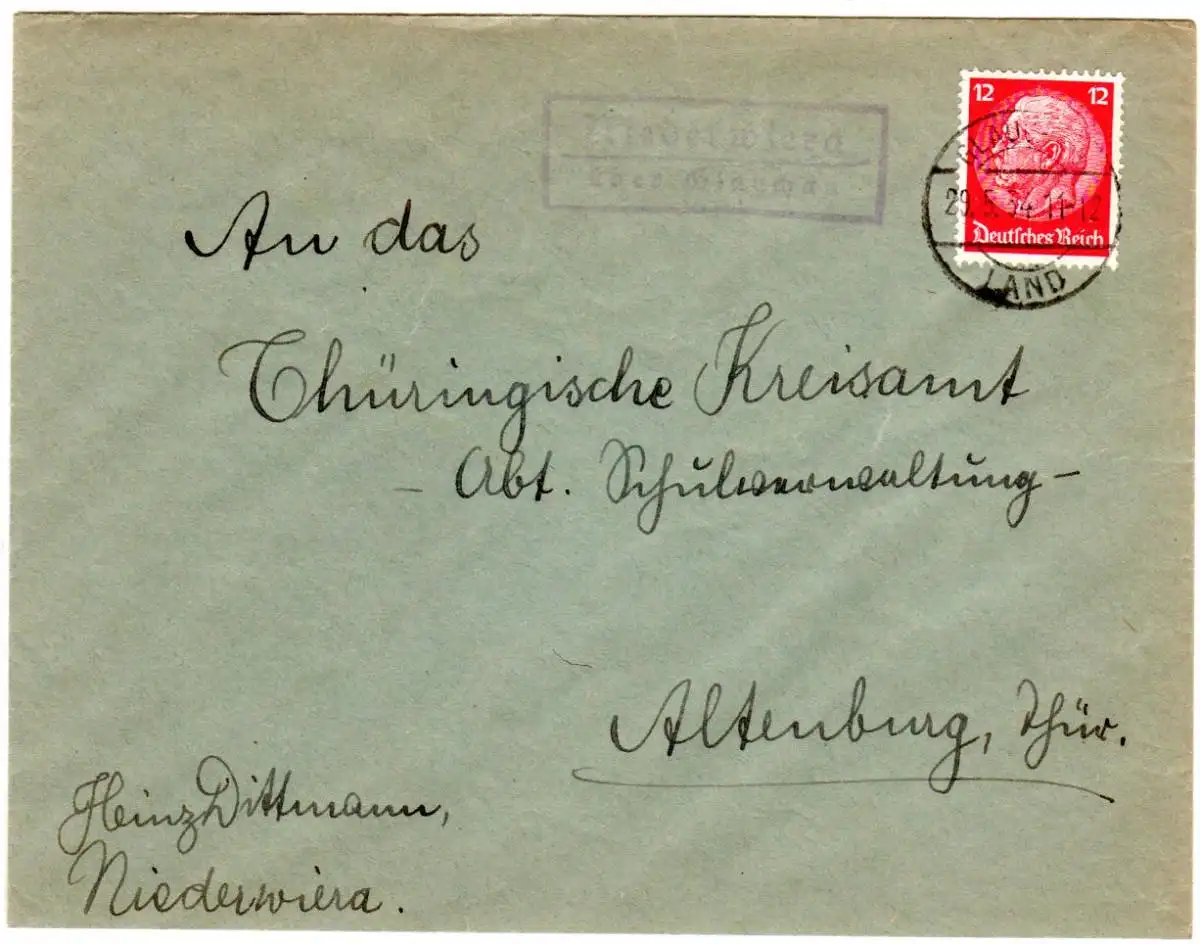 12 12
Deutsches Reich
29.5.34.11-12
LAND
An das
Thüringische Kreisamt
- Abt. Schulverwaltung -
Altenburg, Thür.
Heinz Dittmann,
Niederwiera.